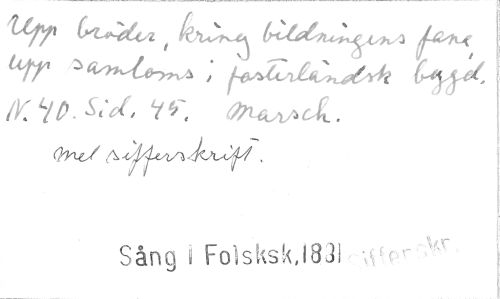 Upp bröder, kring bildningens fana,
upp samloms i fosterländsk bygd.
N. 40. Sid. 45. Marsch.
mel sifferskrift.
Sång i Folsksk, 1881 sifferskr.